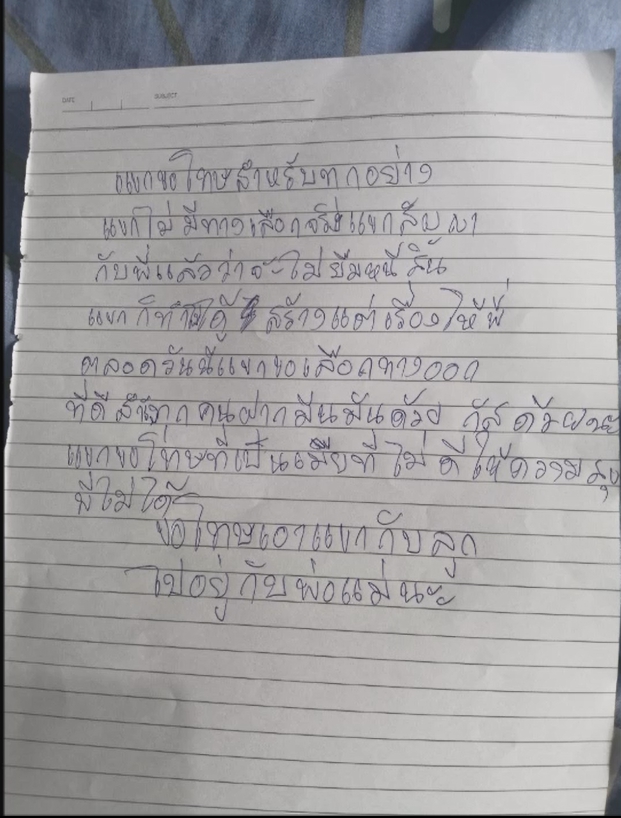 DATE SUBJECT
แขกขอโทษสำหรับทุกอย่าง
แขกไม่มีทางเลือกจริงแขกสัญญา
กับพี่แล้วว่าจะไม่ยืมหนี้
แขกก็ทำ สร้างแต่เรื่องให้พี่
ตลอดวันนี้แขกขอเลือกทางออก
ที่ดี ทุกคนฝากมีนมันด้วย กัส ด้วยนะ
แขกขอโทษที่เป็นเมียที่ไม่ดีให้ความสุข
พี่ไม่ได้
ขอโทษเอาแขกกับลูก
ไปอยู่กับพ่อแม่นะ